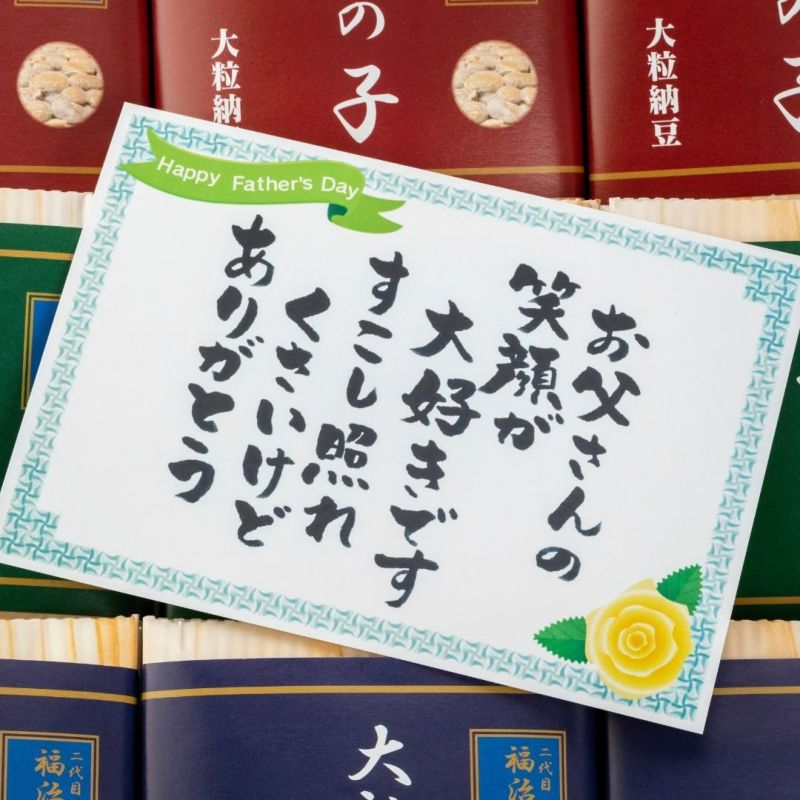 の子
大粒納豆
の子
大粒納豆
Happy Father's Day
お父さんの
笑顔が
大好きです
すこし照れ
くさいけど
ありがとう
二代目
福治
大
二代目
福治